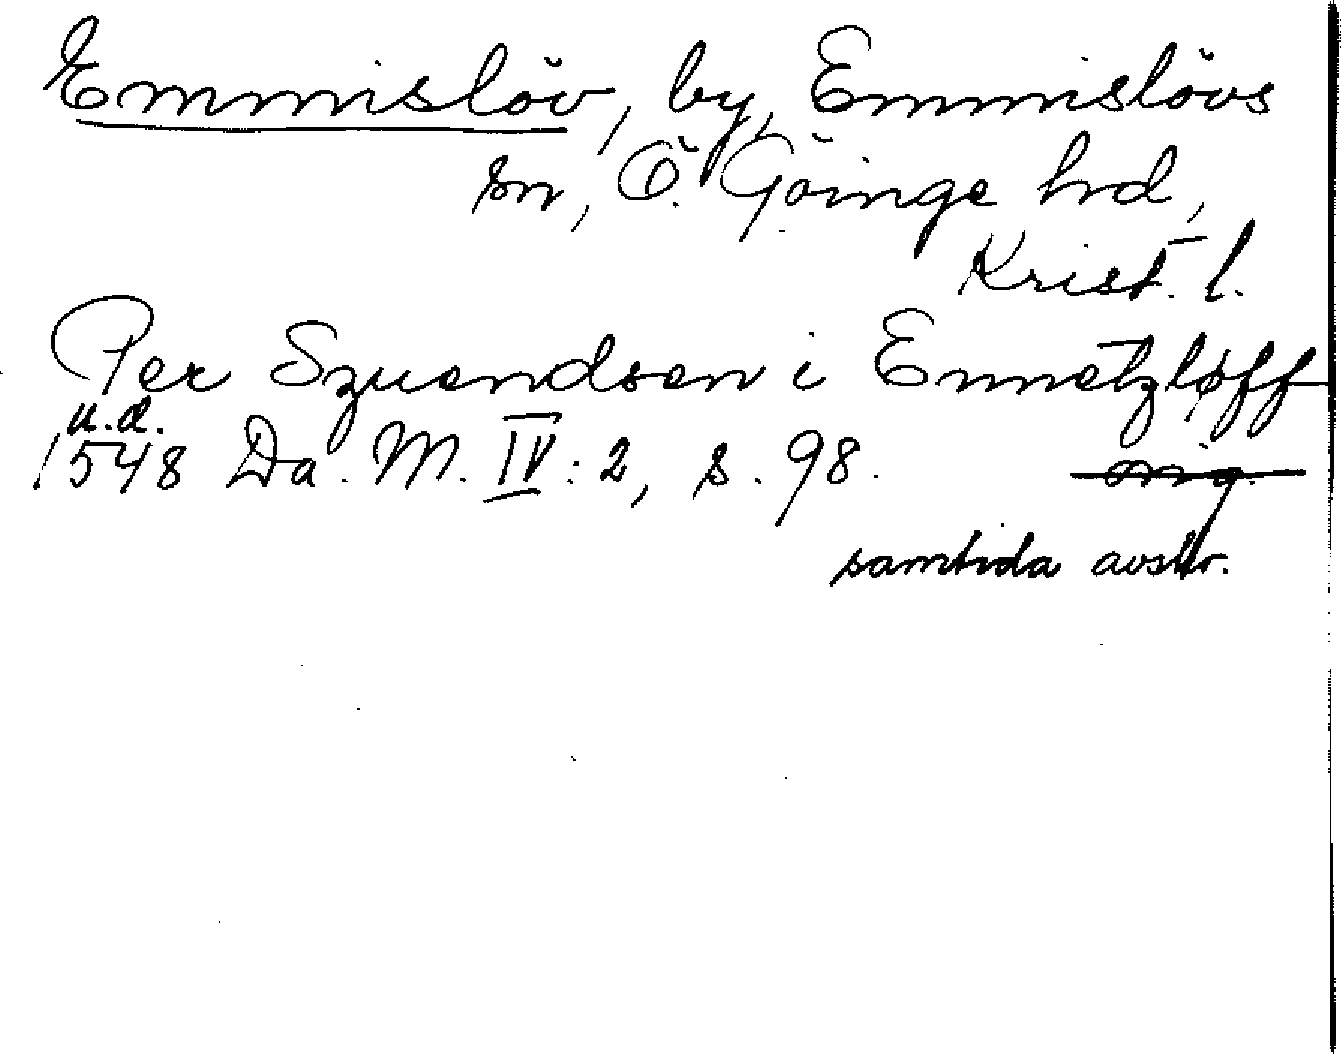 Emmislöv, by, Emmislövs
sn, Ö. Göinge hd,
Krist. l.
Per Szuendsen i Ennetzløff
u.d.
1548 Da. M. IV: 2, s. 98.
samtida avskr.